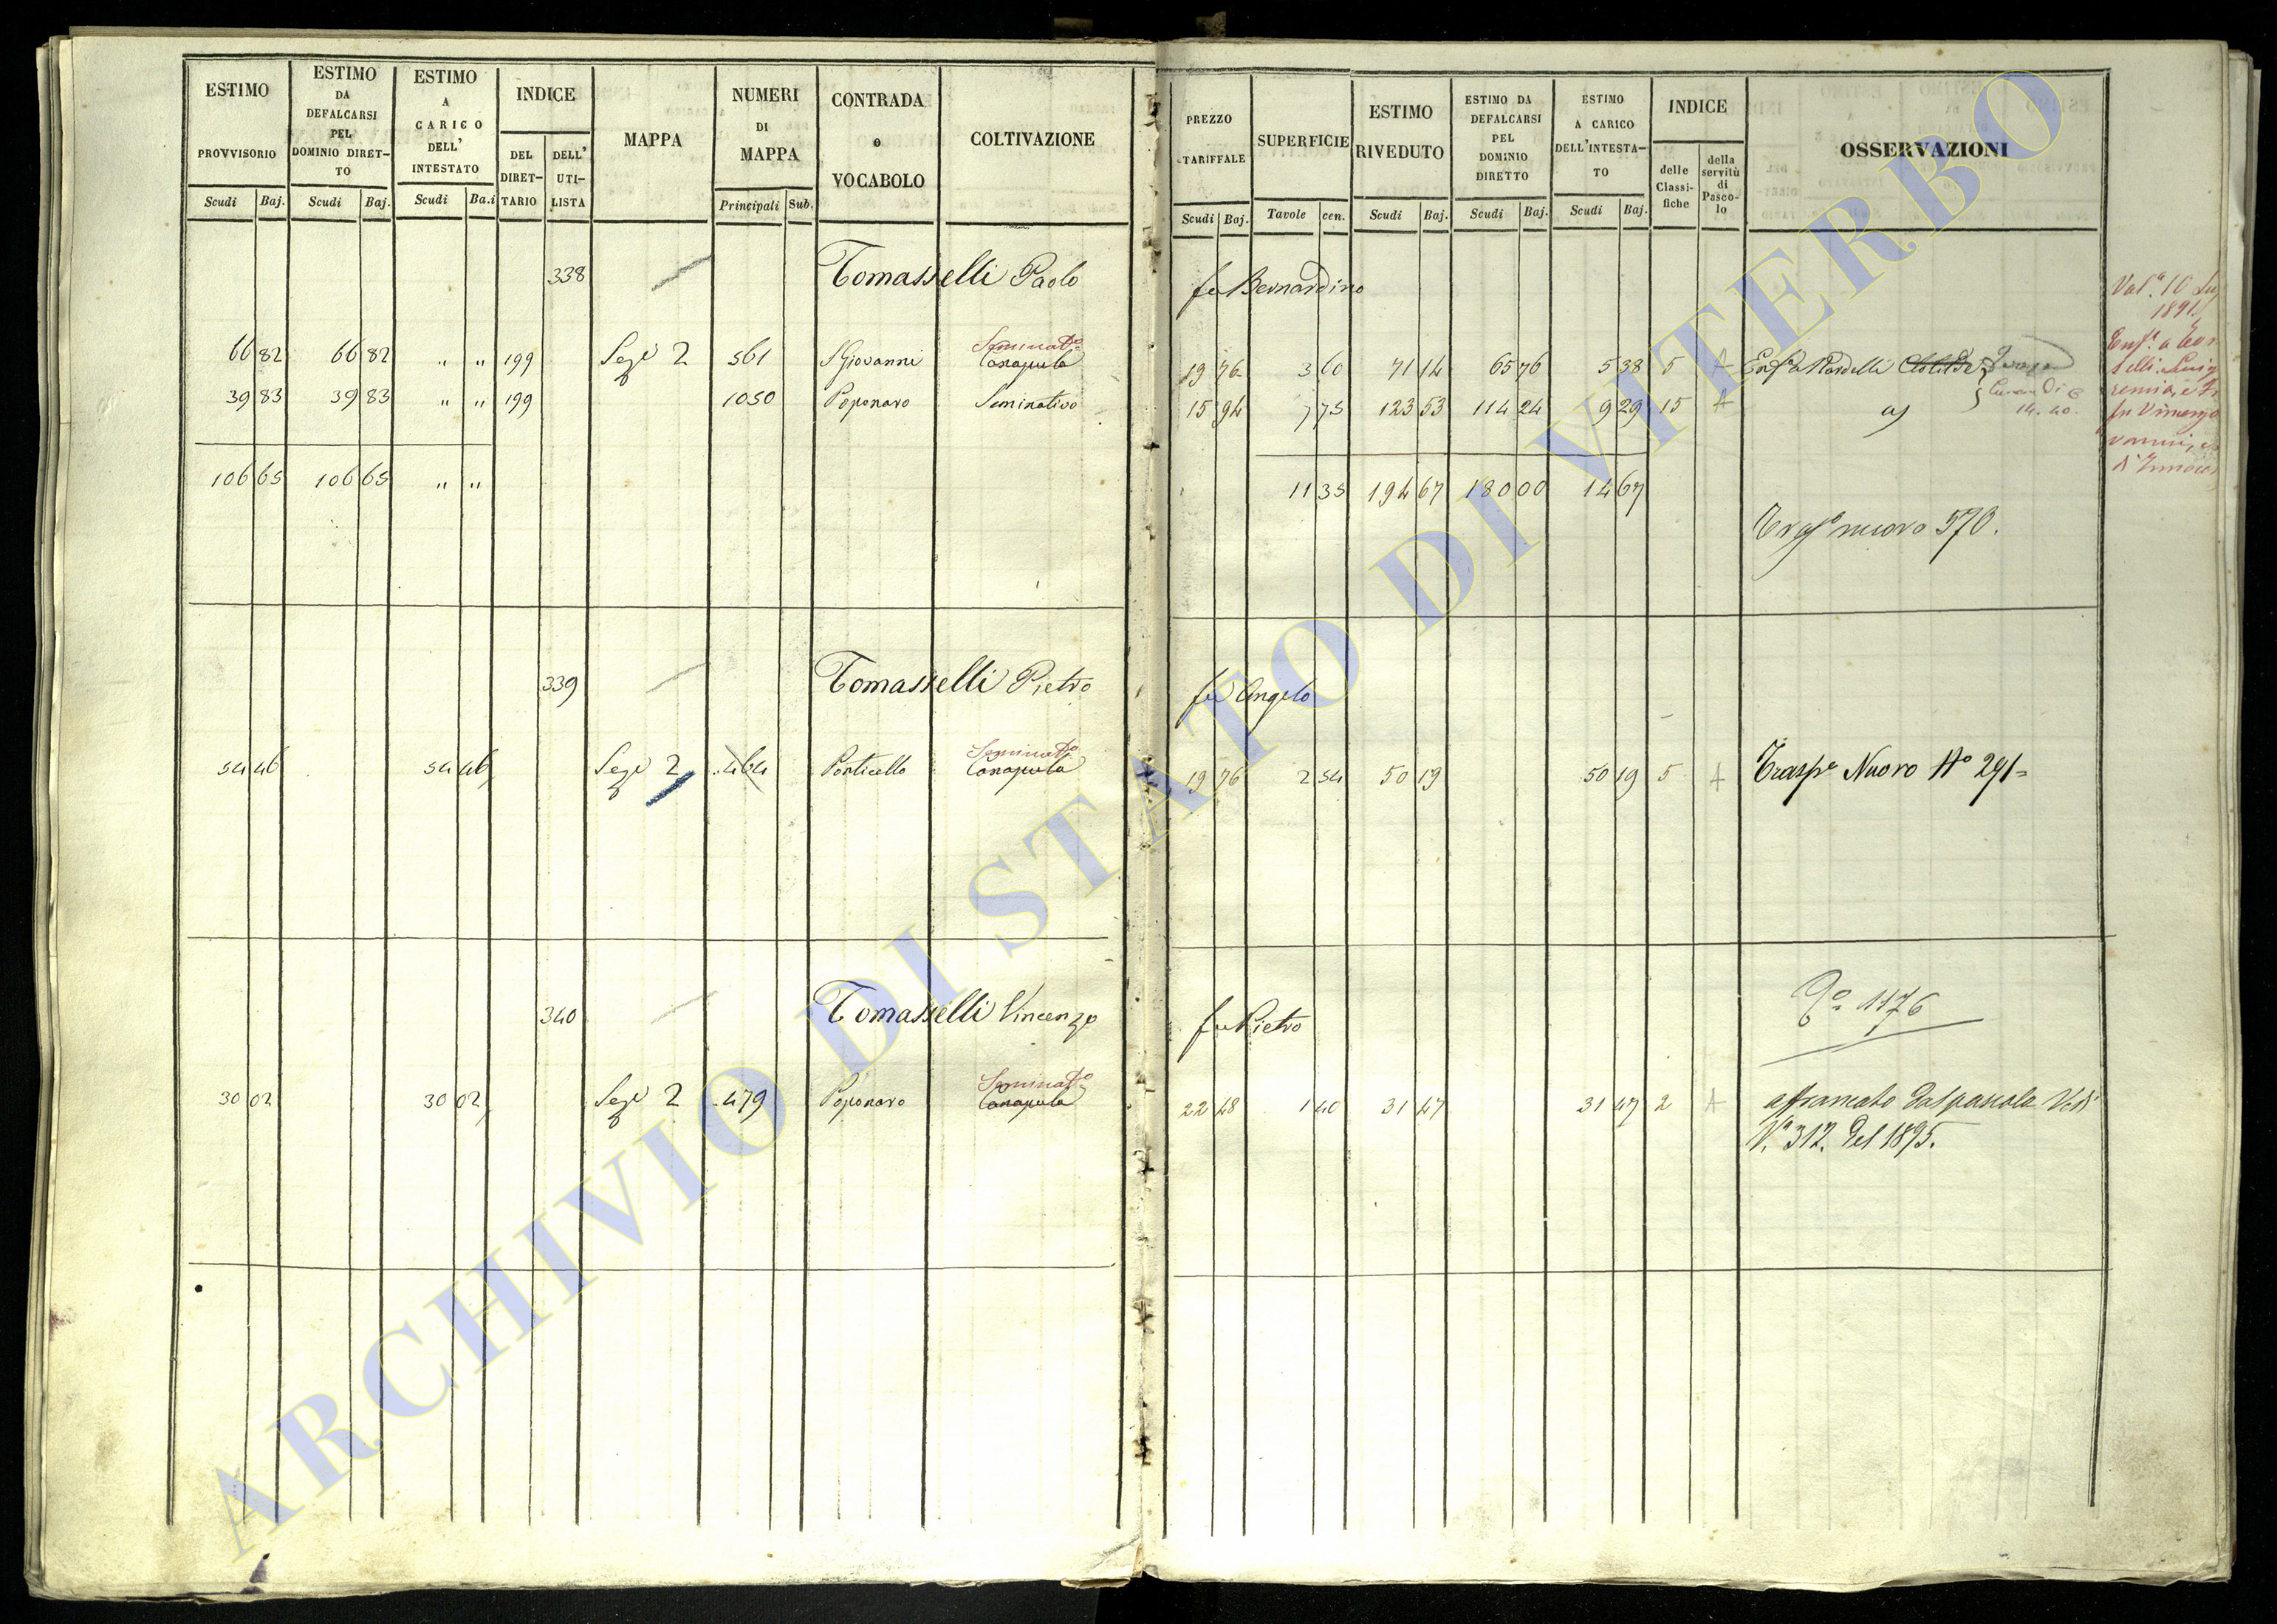 ESTIMO PROVVISORIO Scudi Baj.
ESTIMO DA DEFALCARSI PEL DOMINIO DIRET-TO Scudi Baj.
ESTIMO A CARICO DELL' INTESTATO Scudi Ba.i
INDICE DEL DIRET-TARIO DELL' UTI-LISTA
MAPPA
NUMERI DI MAPPA Principali Sub.
CONTRADA o VOCABOLO
COLTIVAZIONE
PREZZO TARIFFALE Scudi Baj.
SUPERFICIE Tavole cen.
ESTIMO RIVEDUTO Scudi Baj.
ESTIMO DA DEFALCARSI PEL DOMINIO DIRETTO Scudi Baj.
ESTIMO A CARICO DELL'INTESTA-TO Scudi Baj.
INDICE delle Classi-fiche della servitù di Pasco-lo
OSSERVAZIONI
338 Tomasselli Paolo fu Bernardino
Seminat.o
66 82 66 82 " " 199 Sez.e 2 561 S Giovanni Canapula 19 76 3 60 71 14 65 76 5 38 5 A Enf.a Nardelli Clotilde
39 83 39 83 " " 199 1050 Poponaro Seminativo 15 94 7 75 123 53 114 24 9 29 15 A
106 65 106 65 " " 11 35 194 67 180 00 14 67
nuovo 570.
1891
339 Tomasselli Pietro fu Angelo
Seminat.o
54 46 54 46 Sez.e 2 464 Ponticello Canapula 19 76 2 54 50 19 50 19 5 A Trasp.o Nuovo N.o 291=
340 Tomasselli Vincenzo fu Pietro
1176
Seminat.o
30 02 30 02 Sez.e 2 479 Poponaro Canapula 22 48 1 40 31 47 31 47 2 A affrancato dal pascolo Vedi
V.a 312. del 1895.
ARCHIVIO DI STATO DI VITERBO